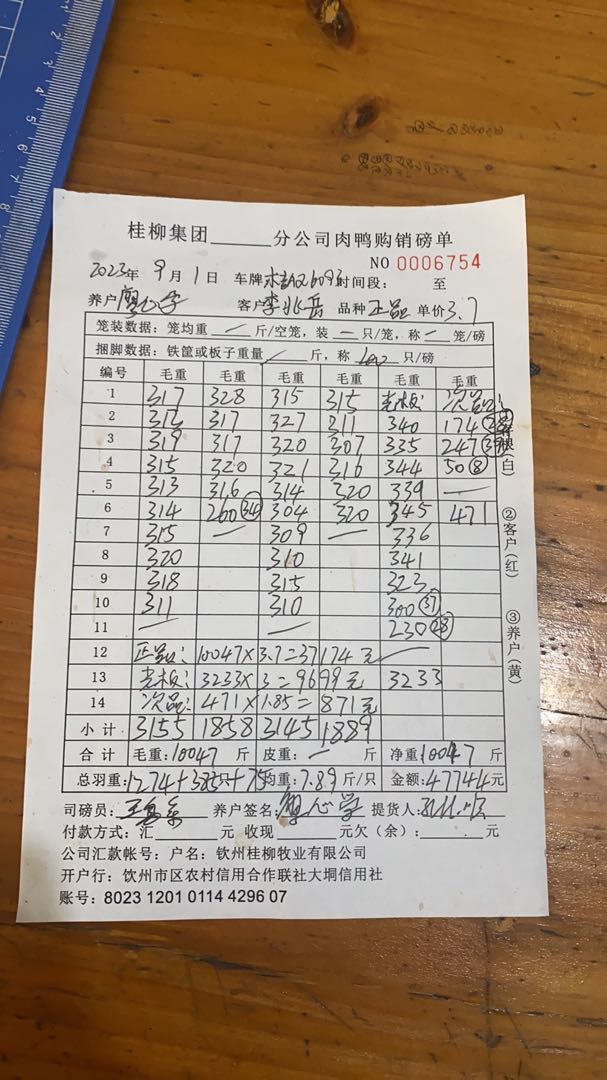 桂柳集团______分公司肉鸭购销磅单
NO 0006754
2023年 9月 1日 车牌 时间段: 至
养户 客户 李兆岳 品种 正品 单价3.7
笼装数据: 笼均重 一 斤/空笼, 装 一 只/笼, 称 一 笼/磅
捆脚数据: 铁筐或板子重量 一 斤, 称 只/磅
编号 毛重 毛重 毛重 毛重 毛重 毛重
1 317 328 315 315 老板: 次品:
2 312 317 327 311 340 174
3 319 317 320 307 335 247
4 315 320 321 316 344 50 ⑧
5 313 316 314 320 339 —
6 314 260 ㉞ 304 320 345 471
7 315 — 309 — 336
8 320 310 341
9 318 315 323
10 311 310 300 ㊲
11 — — 230 ㉘
12 正品: 10047×3.7=37174元 —
13 老板: 3233×3=9699元 3233
14 次品: 471×1.85=871元
小计 3155 1858 3145 1889
合计 毛重: 10047 斤 皮重: 一 斤 净重 10047 斤
总羽重: 1274+385只+75 均重: 7.89 斤/只 金额: 47744元
司磅员: 养户签名: 提货人:
付款方式: 汇______元 收现______元欠(余):______元
公司汇款帐号: 户名: 钦州桂柳牧业有限公司
开户行: 饮州市区农村信用合作联社大垌信用社
账号: 8023 1201 0114 4296 07
(白)
②客户(红)
③养户(黄)